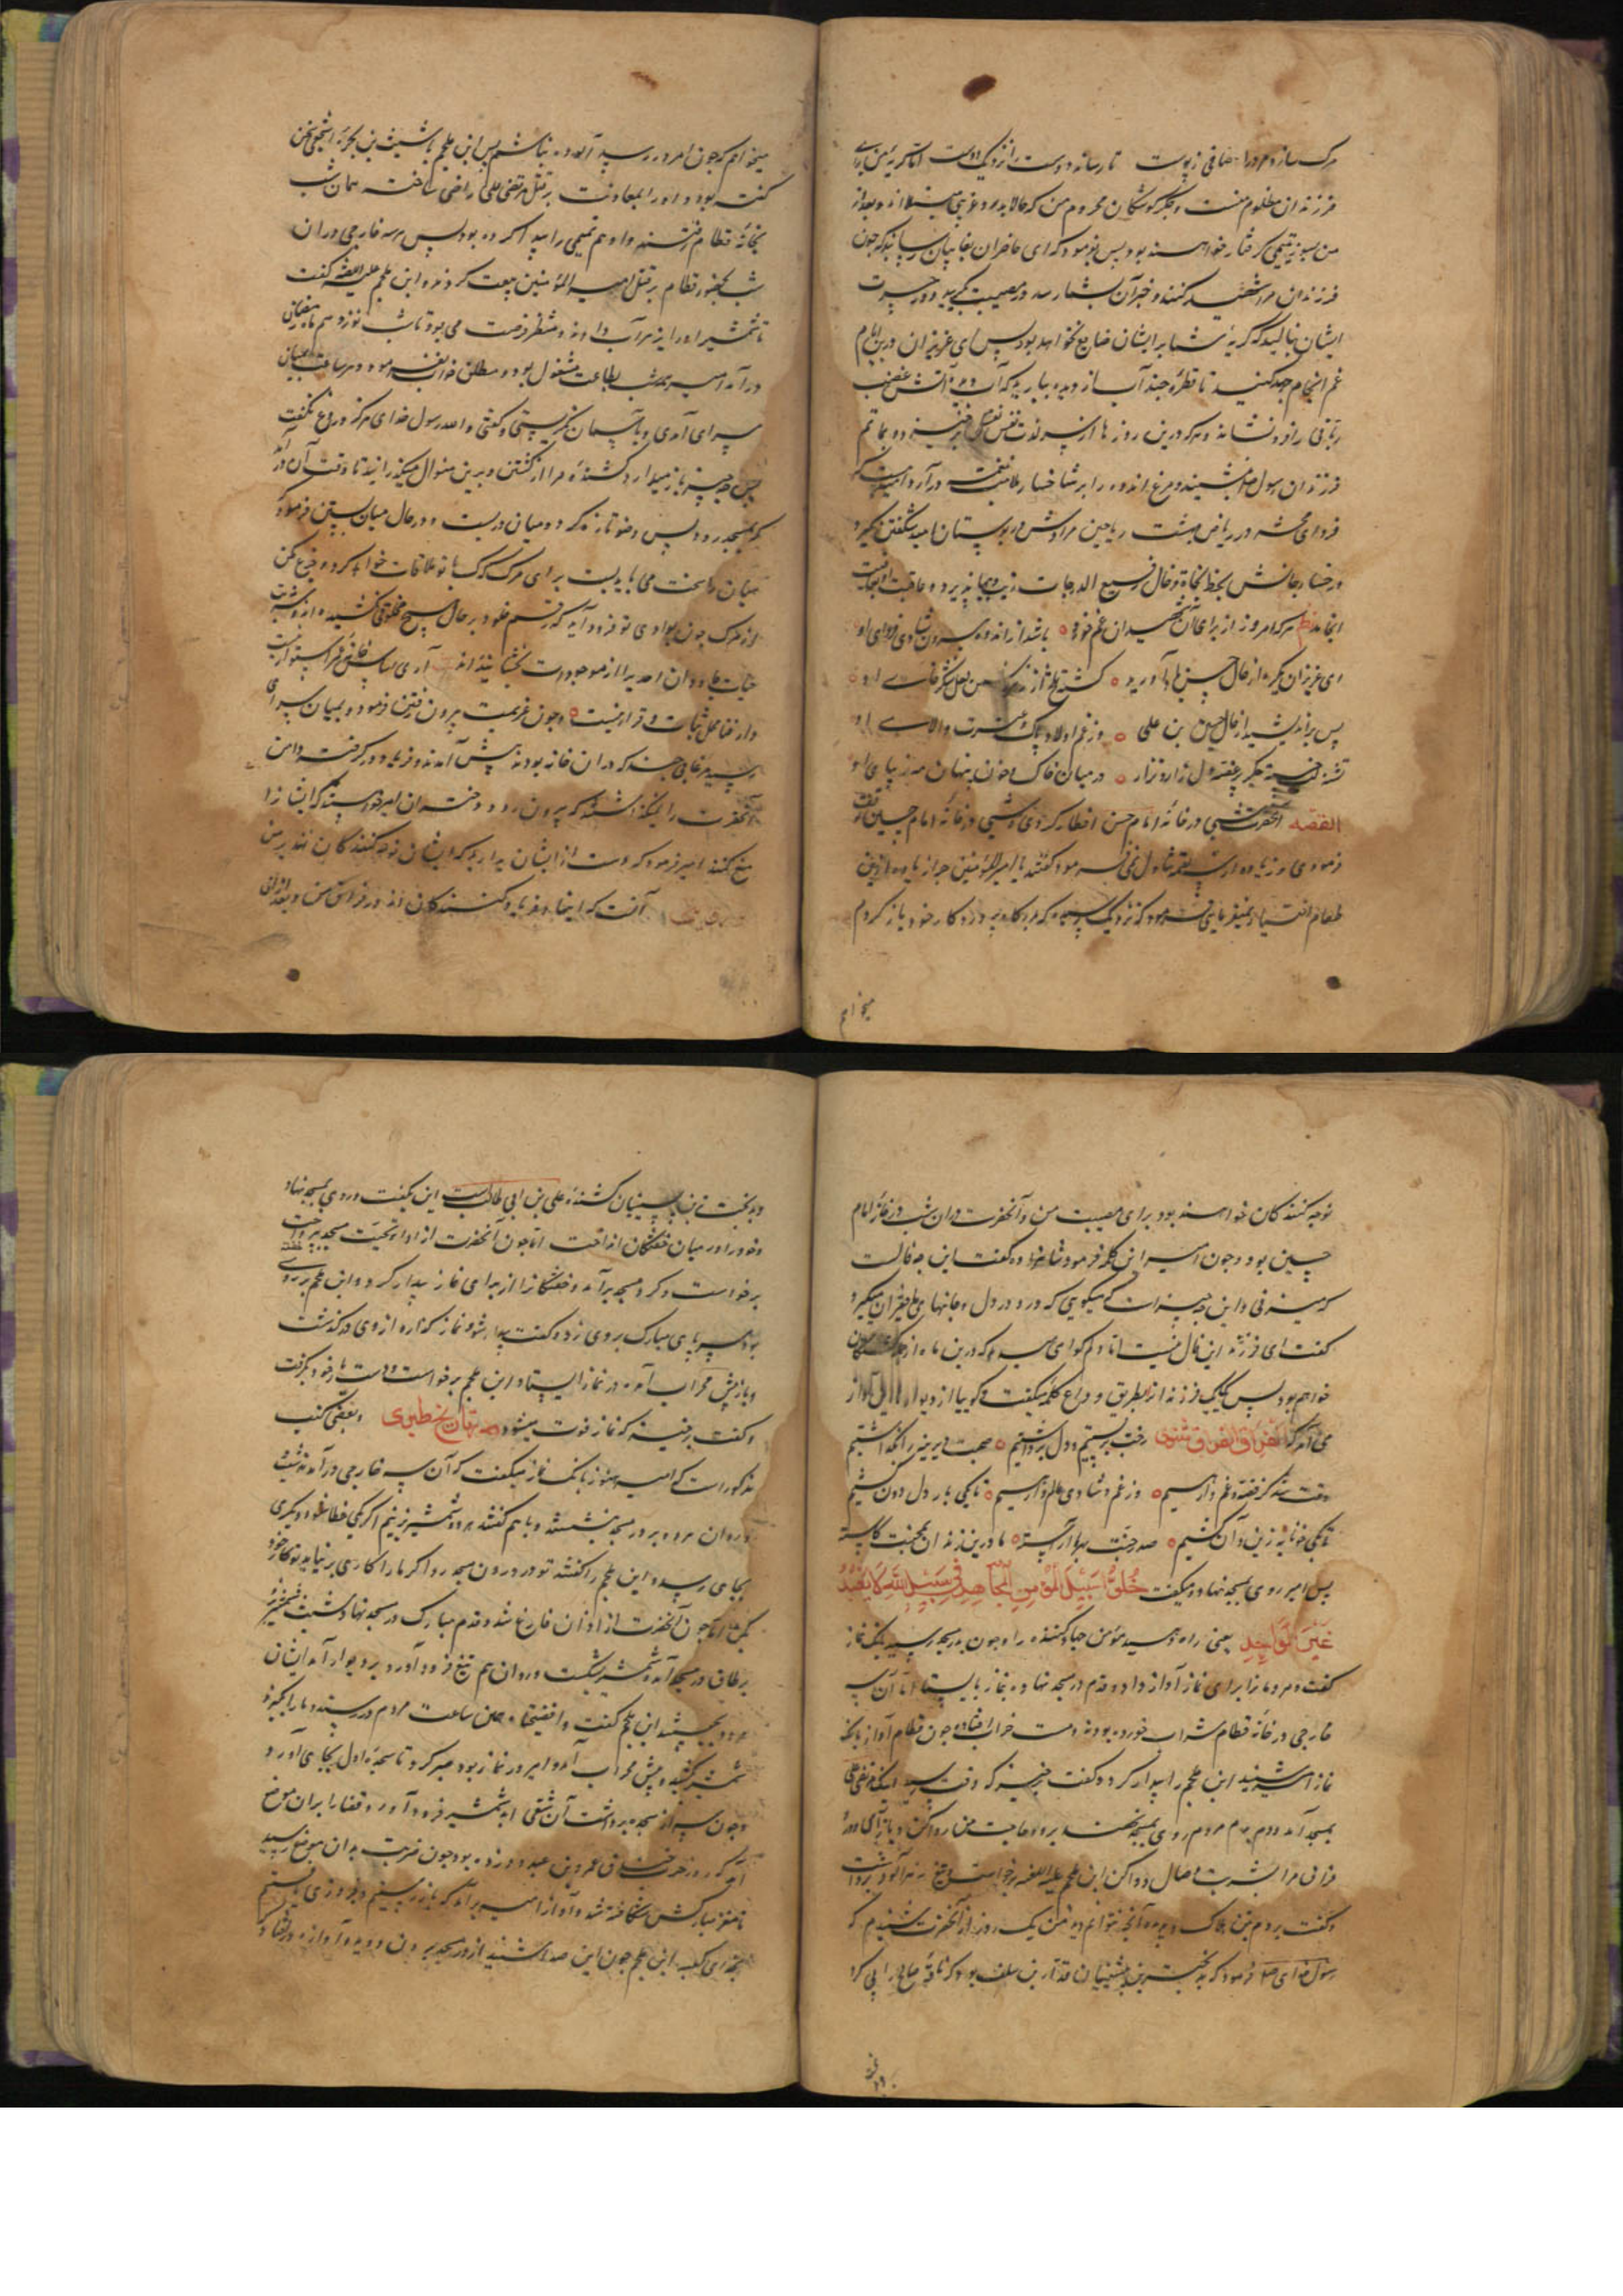 مرگ سازد مرد را صافی ز پوست تا رساند دوست را نزدیک دوست اما گریهٔ من برای
فرزندان مظلوم منست و جگرگوشگان محروم من که حالا بدرد غریبی مبتلااند و بعد از
من بسوز یتیمی گرفتار خواهند بود پس فرمود که ای حاضران بغایبان رسانید که چون
فرزندان مرا شهید کنند و خبر آن بشما رسد در مصیبت بگریید و در حسرت
ایشان بنالید که گریهٔ شما بر ایشان ضایع نخواهد بود پس ای عزیزان درین ایام
غم انجام جهد کنید تا قطرهٔ چند آب از دیده ببارید که آب دیده آتش غضب
ربانی را فرو نشاند و هر که درین روزها از سر لذت نفس برخیزد و بماتم
فرزندان رسول خدا بنشیند و مرغ اندوه را بر شاخسار ملامت در آرد امیدست که
فردای محشر در ریاض بهشت ریاحین مرادش در بوستان امید شکفتن گیرد
و رخسار جانش بخط نجات و خال رفیع الدرجات زیب و بها پذیرد و عاقبت
انجامد نظم هر که امروز از برای آن شهیدان غم خورد باشد از اندوه بیرون شادی فردای او
ای عزیزان بگریه از حال حسین یاد آورید گشته تلخ از زهر من لعل شکرخای او
پس براندیشید از حال حسین بن علی وز غم اولاد پاک و عترت والای او
تشنه لب خسته جگر پرغصه دل زار و نزار در میان خاک و خون پنهان رخ زیبای او
القصه آنحضرت شبی در خانهٔ امام حسن افطار کردی و شبی در خانهٔ امام حسین
فرمودی و زیاده از سه لقمه تناول نمی فرمود گفتند یا امیرالمؤمنین چرا زیاده ازین
طعام اختیار نمیفرمایی فرمود که نزدیک رسیده که مرد کار به درد کار خود باز گردم
میخواهم
میخواهم که چون امر در رسد آلوده نباشم پس ابن ملجم با شبیث بن بجره اشجعی سخن
گفته بود و او را بمعاونت بر قتل مرتضی علی راضی ساخته همان شب
بخانهٔ قطام رفتند و او هم تمیمی را پیدا کرده بود پس هر سه خارجی در آن
شب بحضور قطام بر قتل امیرالمؤمنین بیعت کردند و ابن ملجم علیه اللعنه گفت
تا شمشیر او را زهر آب دادند و منتظر فرصت می بود تا شب نوزدهم ماه رمضان
درآمد امیر همه شب بطاعت مشغول بود و مطلق خواب نفرمود و هر ساعت بمیان
سرای آمدی و بآسمان نگریستی و گفتی والله رسول خدای هرگز دروغ نگفت
پس چه چیز باز میدارد کشندهٔ مرا از کشتن و برین منوال میگذرانید تا وقت آن در آمد
که بمسجد رود پس وضو تازه کرد و میان در بست و در حال میان بستن فرمود که
میان را سخت می باید بست برای مرگ که مرگ با تو ملاقات خواهد کرد و جزع مکن
از مرگ چون بوادی تو فرود آید که رقم خلود بر حال هیچ مخلوقی نکشیده اند و شربت
حیات جاودان احدی را از موجودات نچشانیده اند آری اساس خانهٔ عمر استوار نیست
دار فنا محل ثبات و قرار نیست و چون عزیمت بیرون رفتن فرمود و بمیان سرای
رسید مرغابی چند که در آن خانه بودند پیش آمدند و فریاد در گرفتند و دامن
آنحضرت را میگذاشتند که بیرون رود دختران امیر خواستند که ایشانرا
منع کنند امیر فرمود که دست از ایشان بدارید که ایشان نوحه کنندگان انند بر من
آنست که اینها فریاد کنندگان اند در فراق من و بعد ازین
نوحه کنندگان خواهند بود برای مصیبت من و آنحضرت در آن شب در خانهٔ امام
حسین بود و چون امیر این کلمه فرمود شاهزاده گفت این چه فالست
که میزنی و این چه چیزست که میگویی که درد در دل و جانهای حاضران میگیرد
گفت ای فرزند این فال نیست اما دلم گواهی میدهد که درین ماه از جملهٔ کشتگان
خواهم بود پس یکیک فرزند از بطریق وداع کلمه میگفت و گوییا از در و دیوار آواز
می آمد که الفراق الفراق مثنوی رخت بر بستیم و دل برداشتیم صحبت دیرینه را بگذاشتیم
وقت شد کز غصه و غم وارهیم وز غم و شادی عالم وارهیم تا بکی بار دل دون کشیم
تا بکی خونابه زین و آن کشیم صد جنت بهر ما آراسته ما درین زندان محنت کاسته
پس امیر روی بمسجد نهاد و میگفت خلوا سبیل المؤمن المجاهد فی سبیل الله لا یعبد
غیر الواحد یعنی راه دهید مؤمن جهاد کننده را و چون بدر مسجد رسید بانگ نماز
گفت و مردمانرا برای نماز آواز داد و قدم در مسجد نهاده بنماز بایستاد اما آن سه
خارجی در خانهٔ قطام شراب خورده بودند و مست خراب افتاده چون قطام آواز بانگ
نماز امیر شنید ابن ملجم را بیدار کرد و گفت برخیز که وقت رسید اینک مرتضی علی
بمسجد آمد و دم بدم مردم روی بمسجد نهند برو و حاجت من روا کن و باز آی و درد
فراق مرا بشربت وصال دوا کن ابن ملجم علیه اللعنه برخاست و تیغ زهر آلود برداشت
و گفت بردم من هلاک و آنچه نتوانم دید من یک روز از آنحضرت شنیدم که
رسول خدای فرمود که بدبخت ترین پیشینیان قدار بن سلف بود که ناقهٔ صالح را پی کرد
و بدبخت ترین پسینیان کشندهٔ علی بن ابی طالبست این بگفت و روی بمسجد نهاد
و خود را در میان خفتگان انداخت اما چون آنحضرت از ادای تحیت مسجد بپرداخت
برخاست و گرد مسجد برآمد و خفتگانرا از برای نماز بیدار کرد و ابن ملجم بر روی
بود امیر پای مبارک بر وی زد و گفت بیدار شو و نماز گذار و از وی در گذشت
و باز پیش محراب آمد و در نماز ایستاد ابن ملجم برخاست و دست یار خود بگرفت
و گفت برخیز که نماز فوت میشود و بعضی کتب
مذکور است که امیر هنوز بانگ نماز میگفت که آن سه خارجی درآمدند شبیث
و وردان هر دو بر در مسجد بنشستند و با هم گفتند هر دو شمشیر بزنیم اگر یکی خطا شود دیگری
بجای رسد و ابن ملجم را گفتند تو در درون مسجد رو اگر ما را کاری بر نیاید تو کار خود
بکن اما چون آنحضرت از اذان فارغ شد و قدم مبارک در مسجد نهاد شبیث شمشیر
بر طاق در مسجد آمد و شمشیر بشکست وردان هم تیغ فرود آورد بر دیوار آمد ایشان
هر دو بجستند ابن ملجم گفت وافضیحتاه همین ساعت مردم در رسند و ما را بگیرند
شمشیر کشیده پیش محراب آمد و امیر در نماز بود صبر کرد تا سجدهٔ اول بجای آورد
و چون سر از سجده برداشت آن شقی شمشیر فرود آورد و قضا را بر آن موضع
آمد که روز حرب خندق عمرو بن عبدود زده بود چون ضربت بدان موضع رسید
تا مغز مبارکش شکافته شد و آواز امیر برآمد که باز رستم و فیروزی یافتم
بخدای کعبه ابن ملجم چون این صدا شنید از در مسجد بیرون دوید و آوازه در افتاد که